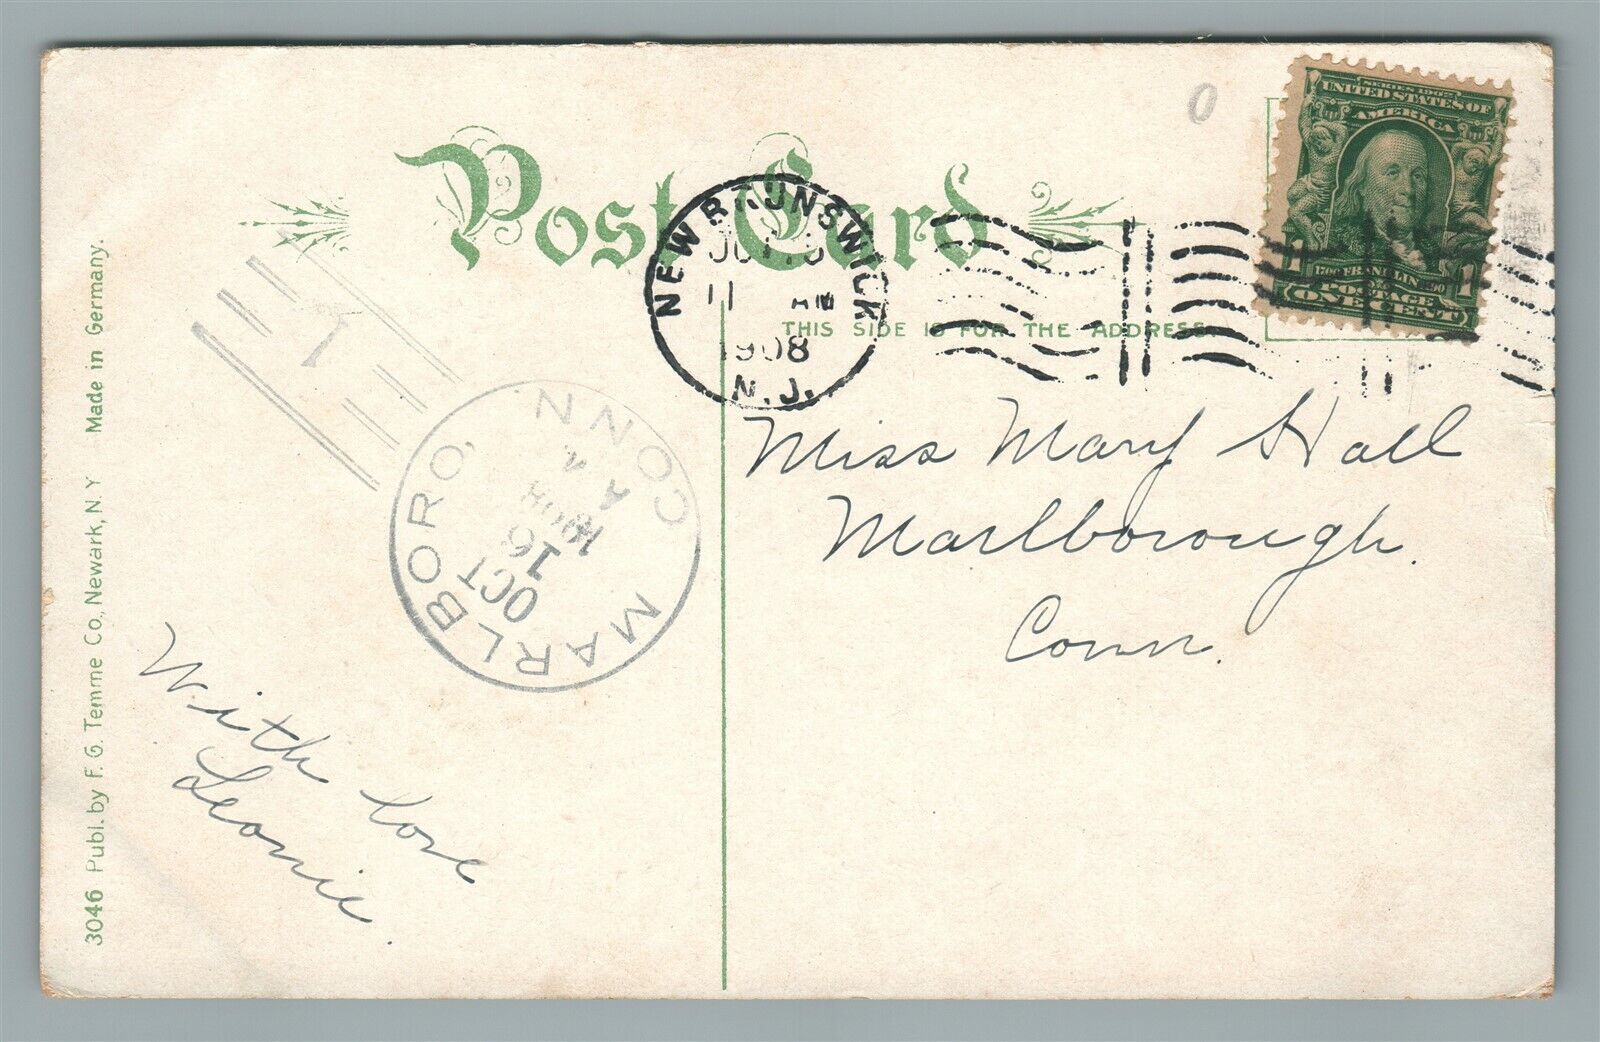 Post Card
THIS SIDE IS FOR THE ADDRESS
SERIES 1902
UNITED STATES OF
AMERICA
1706 FRANKLIN 1790
POSTAGE
1 ONE CENT 1
NEW BRUNSWICK
11 AM
1908
N.J.
MARLBORO,
CONN.
OCT
16
1908
Miss Mary Hall
Marlborough.
Conn.
With love
Leonie.
3046 Publ. by F. G. Temme Co., Newark, N.Y Made in Germany.
0
1